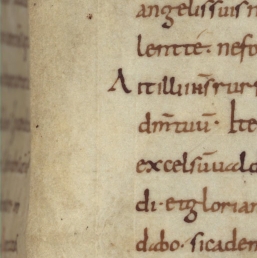 angelis suis
lentte. nefo
Ait illi ihs̄ rur
dm̄ tuū. Ite
excelsū uald
di. et gloria
dabo. si caden